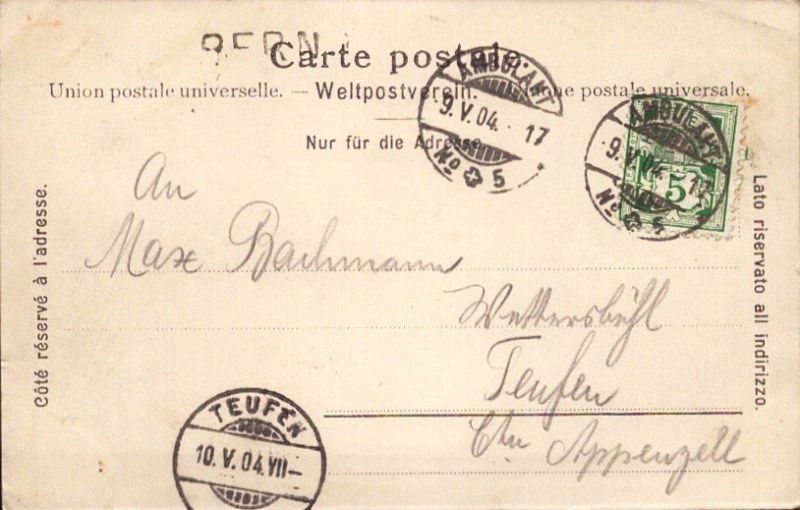 BERN
Carte postale.
Union postale universelle. — Weltpostverein. — Unione postale universale.
Nur für die Adresse.
AMBULANT
9.V.04. 17
No 5
AMBULANT
9.V.04. 17
No 5
5
Côté réservé à l'adresse.
Lato riservato all indirizzo.
An
Max Bachmann
Wettersbühl
Teufen
Ctn Appenzell
TEUFEN
10.V.04.VII–